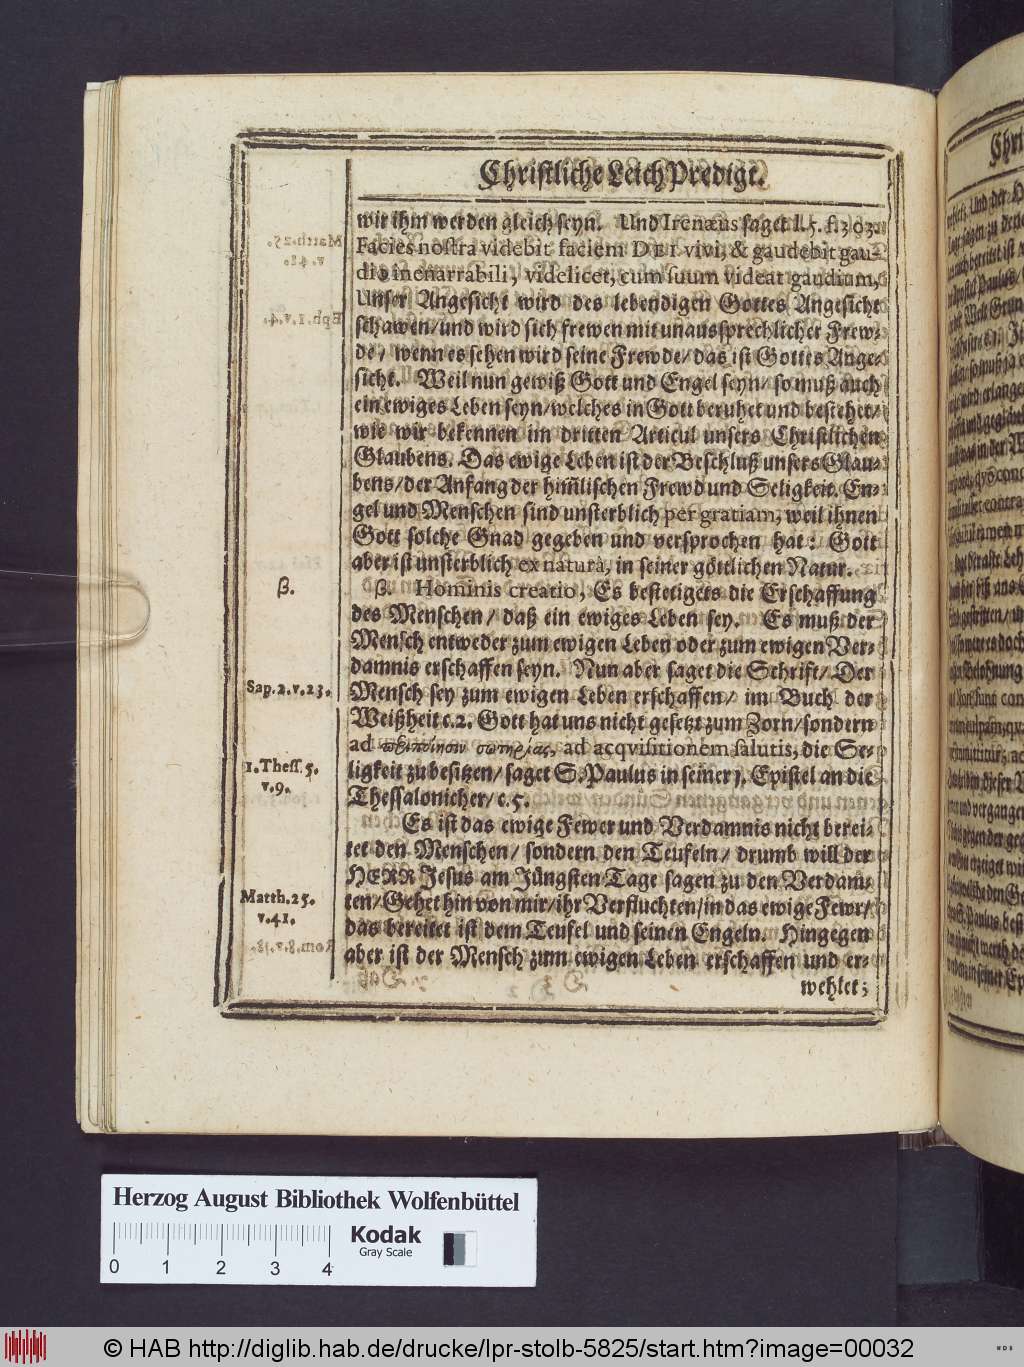 Christliche Leich Predigt.
wir ihm werden gleich seyn. Und Irenæus saget l. 5. f. 303.
Facies nostra videbit faciem DEI vivi, & gaudebit gau-
dio inenarrabili, videlicet, cum suum videat gaudium,
Unser Angesicht wird des lebendigen Gottes Angesicht
schawen/ und wird sich frewen mit unaussprechlicher Frew-
de/ wenn es sehen wird seine Frewde/ das ist Gottes Ange-
sicht. Weil nun gewiß Gott und Engel seyn/ so muß auch
ein ewiges Leben seyn/ welches in Gott beruhet und bestehet/
wie wir bekennen im dritten Articul unsers Christlichen
Glaubens. Das ewige Leben ist der Beschluß unsers Glau-
bens/ der Anfang der him̃lischen Frewd und Seligkeit. En-
gel und Menschen sind unsterblich per gratiam, weil ihnen
Gott solche Gnad gegeben und versprochen hat: Gott
aber ist unsterblich ex naturâ, in seiner göttlichen Natur.
β.
β. Hominis creatio, Es bestetigets die Erschaffung
des Menschen/ daß ein ewiges Leben sey. Es muß der
Mensch entweder zum ewigen Leben oder zum ewigen Ver-
damnis erschaffen seyn. Nun aber saget die Schrift/ Der
Sap. 2. v. 23.
Mensch sey zum ewigen Leben erschaffen/ im Buch der
Weißheit c. 2. Gott hat uns nicht gesetzt zum Zorn/ sondern
ad περιποίησιν σωτηρίας, ad acqvisitionem salutis, die Se-
1. Thess. 5.
v. 9.
ligkeit zu besitzen/ saget S. Paulus in seiner 1. Epistel an die
Thessalonicher/ c. 5.
Es ist das ewige Fewer und Verdamnis nicht berei-
tet den Menschen/ sondern den Teufeln/ drumb will der
HERR Jesus am Jüngsten Tage sagen zu den Verdam-
Matth. 25.
v. 41.
ten/ Gehet hin von mir/ ihr Verfluchten/ in das ewige Fewr/
das bereitet ist dem Teufel und seinen Engeln. Hingegen
aber ist der Mensch zum ewigen Leben erschaffen und er-
wehlet;
Herzog August Bibliothek Wolfenbüttel
Kodak
Gray Scale
0 1 2 3 4
© HAB http://diglib.hab.de/drucke/lpr-stolb-5825/start.htm?image=00032